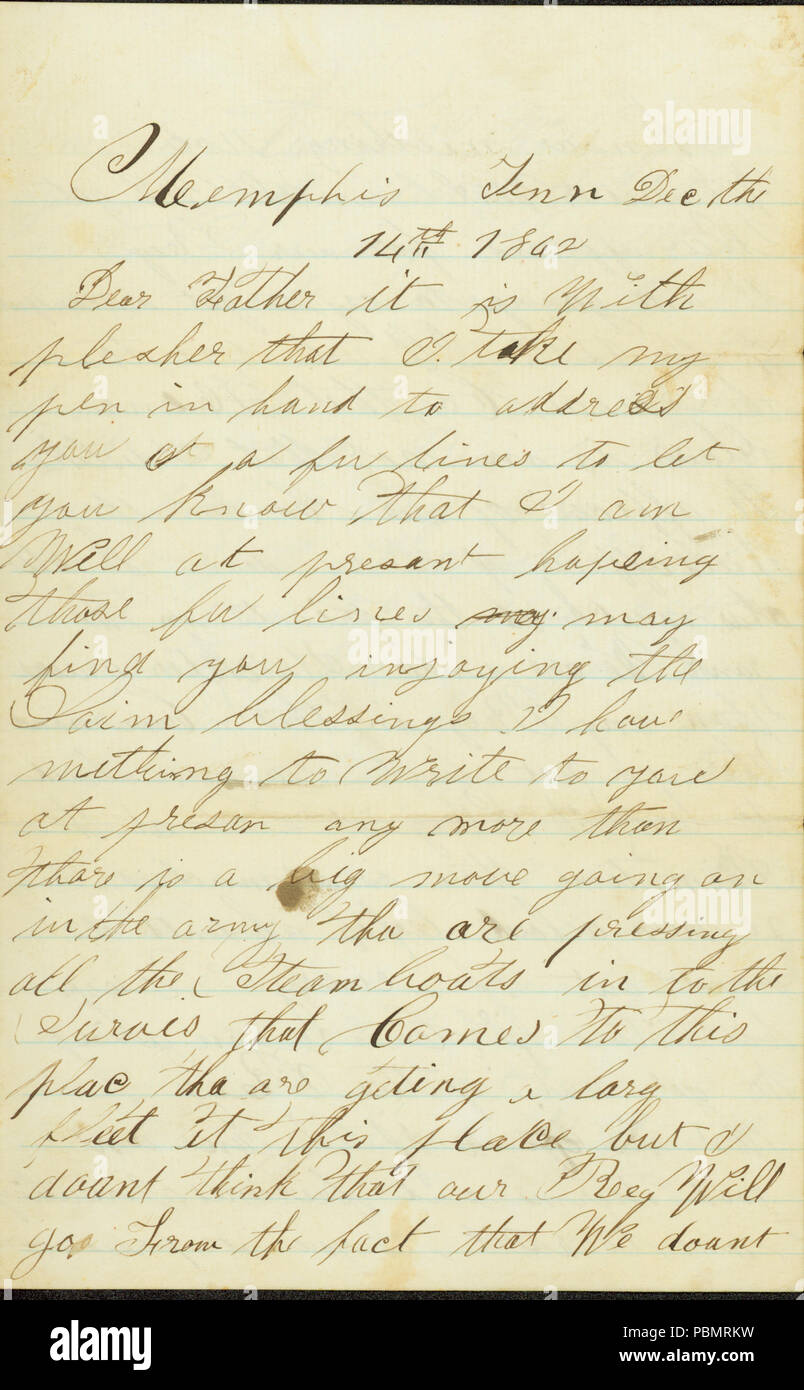 Memphis Tenn Dec the
14th 1862
Dear Father it is With
plesher that I take my
pen in hand to address
you at a fu lines to let
you know that I am
Well at presant hopeing
those fu lines may may
find you injoying the
Saim blessings I have
nothing to Write to you
at presan any more than
thare is a big move going on
in the army tha are pressing
all the Steam boats in to the
Survis that Comes to this
plac tha are geting a larg
fleet at this place but I
doant think that our Reg Will
go From the fact that We doant
alamy
alamy
Image ID: PBMRKW
www.alamy.com